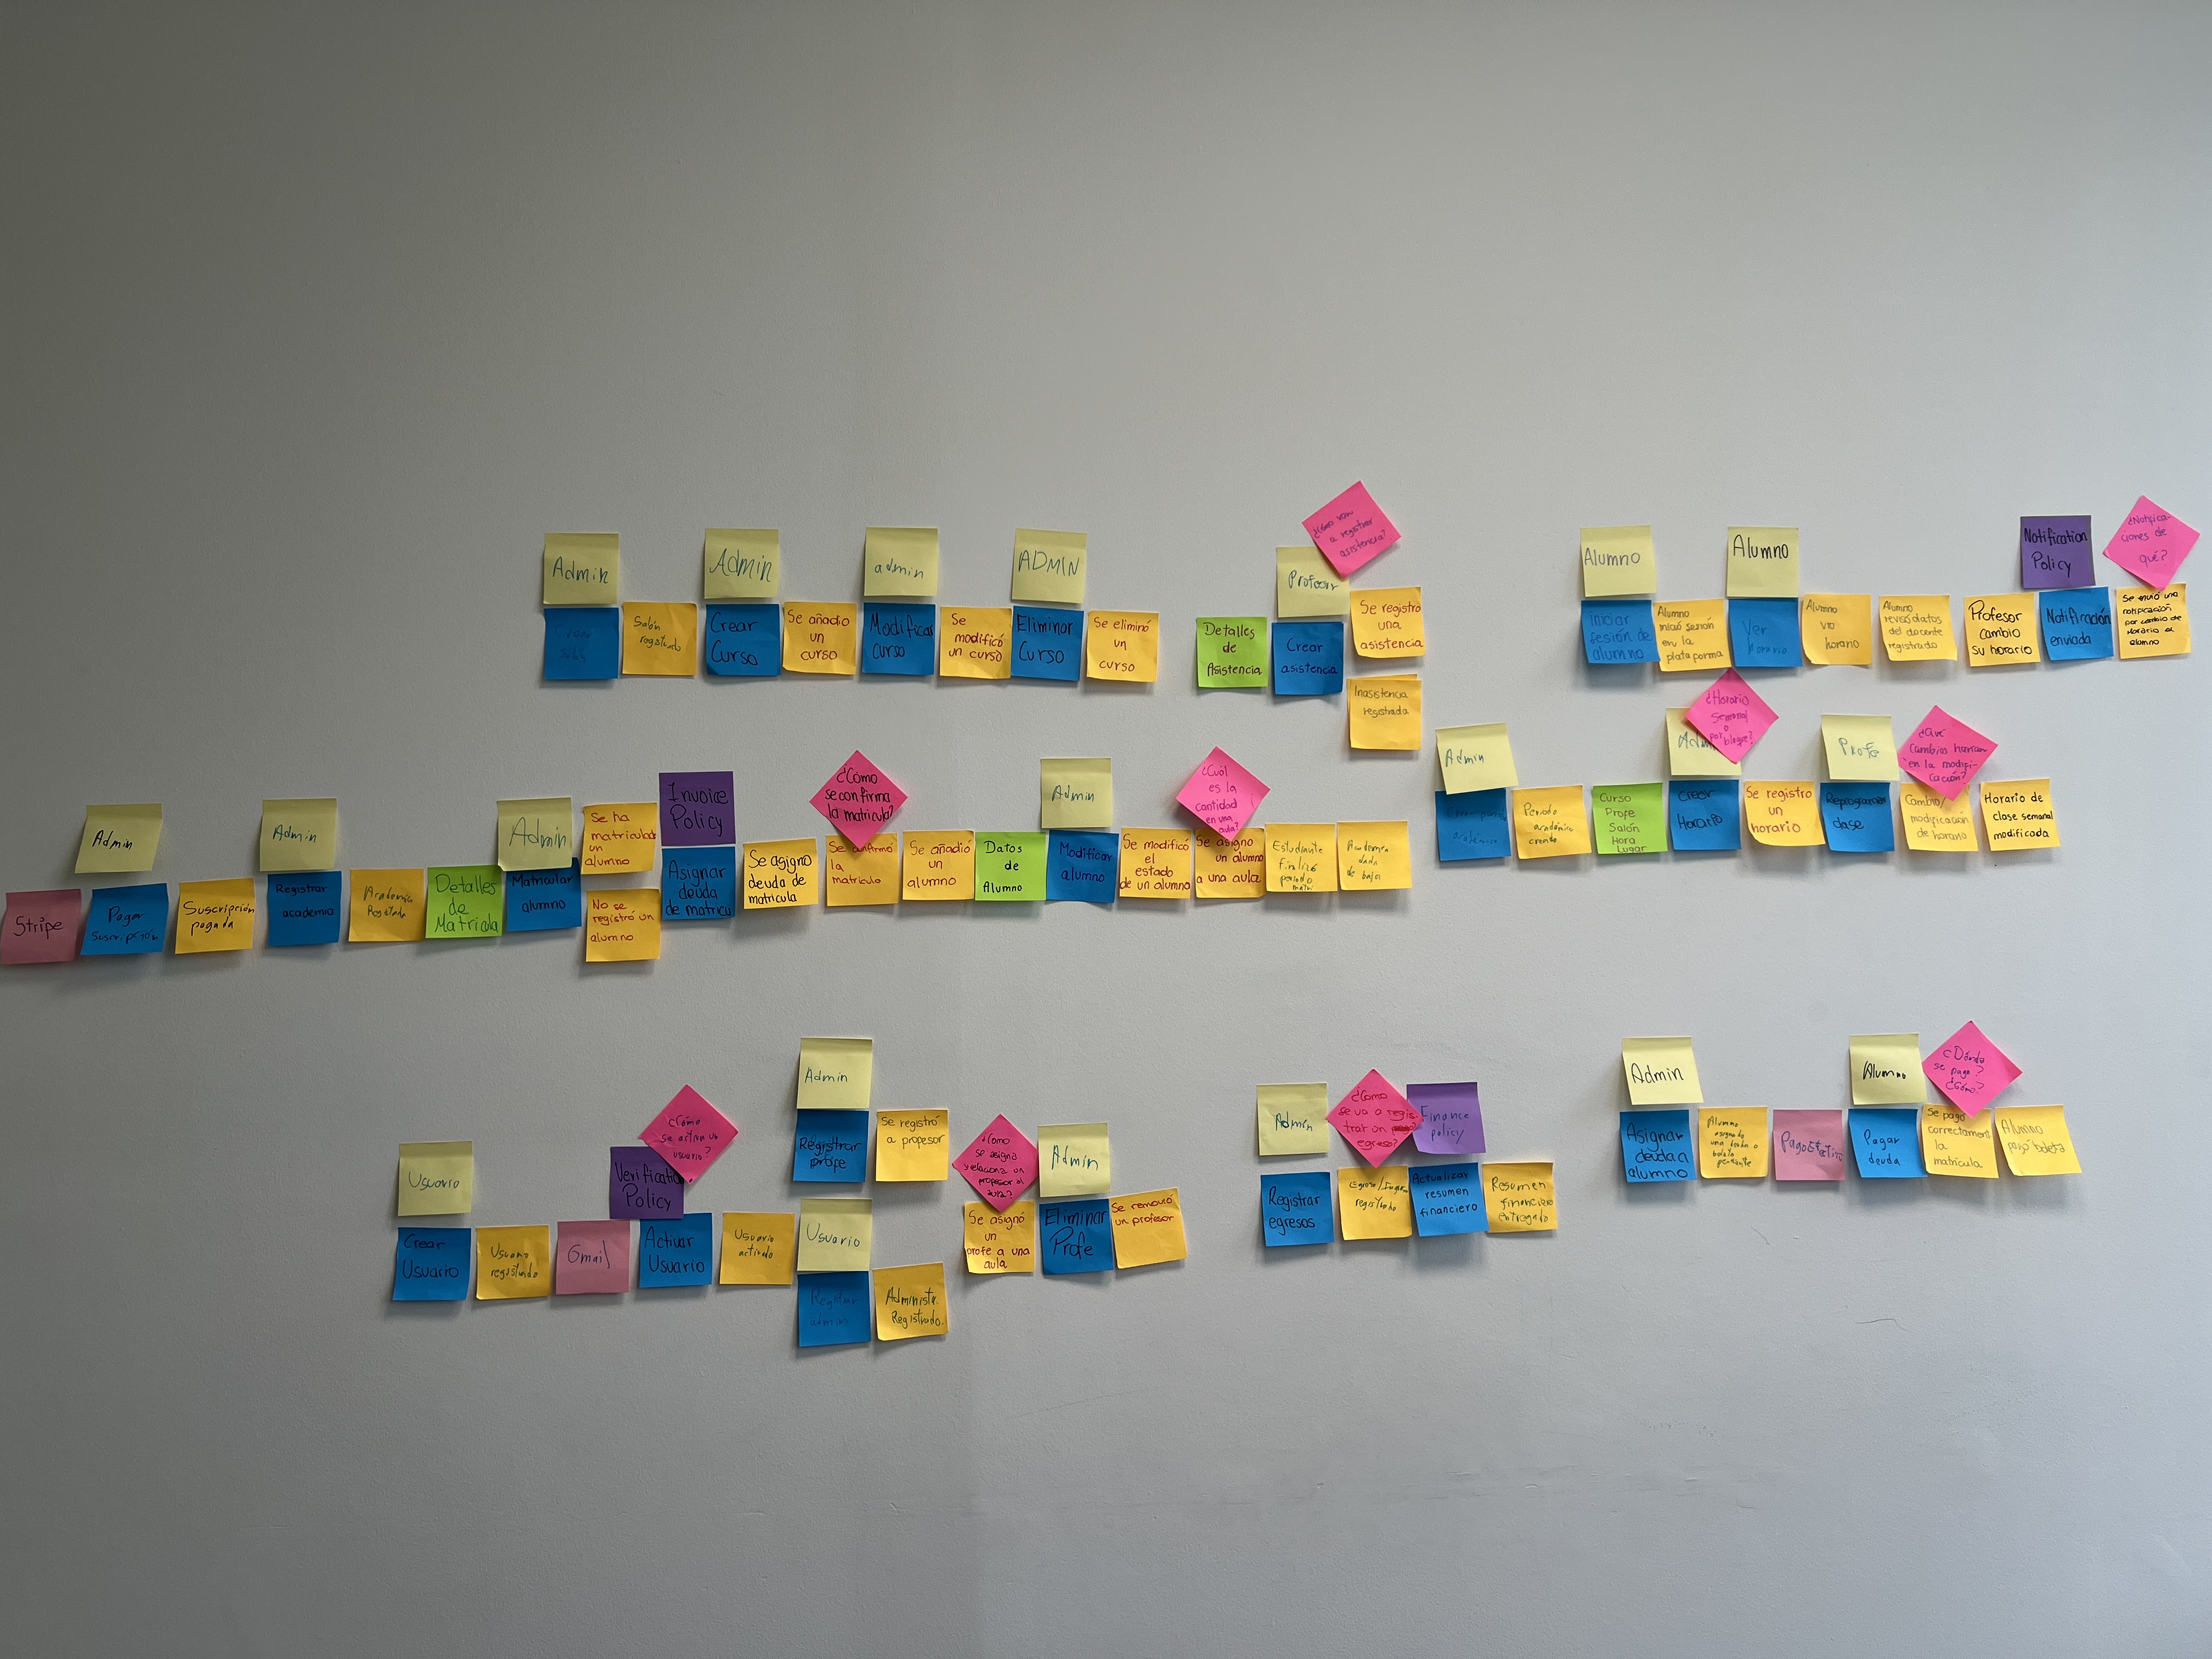 Admin
Crear
Salón
Salón
registrado
Admin
Crear
Curso
Se añadio
un
curso
admin
Modificar
curso
Se
modificó
un curso
ADMIN
Eliminar
Curso
Se eliminó
un
curso
¿Cómo van
a registrar
asistencia?
Profesor
Detalles
de
Asistencia
Crear
asistencia
Se registró
una
asistencia
Inasistencia
registrada
Alumno
Iniciar
sesión de
alumno
Alumno
inició sesión
en la
plataforma
Alumno
Ver
horario
Alumno
vio
horario
Alumno
revisó datos
del docente
registrado
Profesor
cambio
su horario
Notification
Policy
Notificación
enviada
¿Notifica-
ciones de
qué?
Se envió una
notificación
por cambio de
horario al
alumno
Stripe
Admin
Pagar
Suscripción
Suscripción
pagada
Admin
Registrar
academia
Academia
Registada
Detalles
de
Matrícula
Admin
Matricular
alumno
Se ha
matriculado
un
alumno
No se
registró un
alumno
Invoice
Policy
Asignar
deuda
de matricu
Se asigno
deuda de
matrícula
¿Cómo
se confirma
la matrícula?
Se confirmó
la
matrícula
Se añadió
un
alumno
Datos
de
Alumno
Admin
Modificar
alumno
Se modificó
el
estado
de un alumno
¿Cuál
es la
cantidad
en una
aula?
Se asigno
un alumno
a una aula
Estudiante
finalizó
periodo
Academia
dada
de baja
Admin
Crear periodo
académico
Periodo
académico
creado
Curso
Profe
Salón
Hora
Lugar
Admin
¿Horario
semanal
o
por bloque?
Crear
Horario
Se registro
un
horario
Profe
Reprogramar
clase
¿Qué
cambios harian
en la modifi-
cación?
Cambio/
modificación
de horario
Horario de
clase semanal
modificada
Usuario
Crear
Usuario
Usuario
registrado
Gmail
¿Cómo
se activa un
usuario?
Verification
Policy
Activar
Usuario
Usuario
activado
Admin
Registrar
profe
Se registró
a profesor
Usuario
Registrar
admin
Administr.
Registrado.
¿Cómo
se asigna
y relaciona un
profesor al
aula?
Se asignó
un
profe a una
aula
Admin
Eliminar
Profe
Se removió
un profesor
Admin
¿Cómo
se va a regis-
trar un
egreso?
Finance
policy
Registrar
egresos
Egreso/Ingreso
registrado
Actualizar
resumen
financiero
Resumen
financiero
entregado
Admin
Asignar
deuda a
alumno
Alumno
asignado
una deuda o
boleta
pendiente
PagoEfectivo
Alumno
Pagar
deuda
¿Dónde
se pago?
¿Cómo?
Se pagó
correctament
la
matrícula
Alumno
pagó boleta